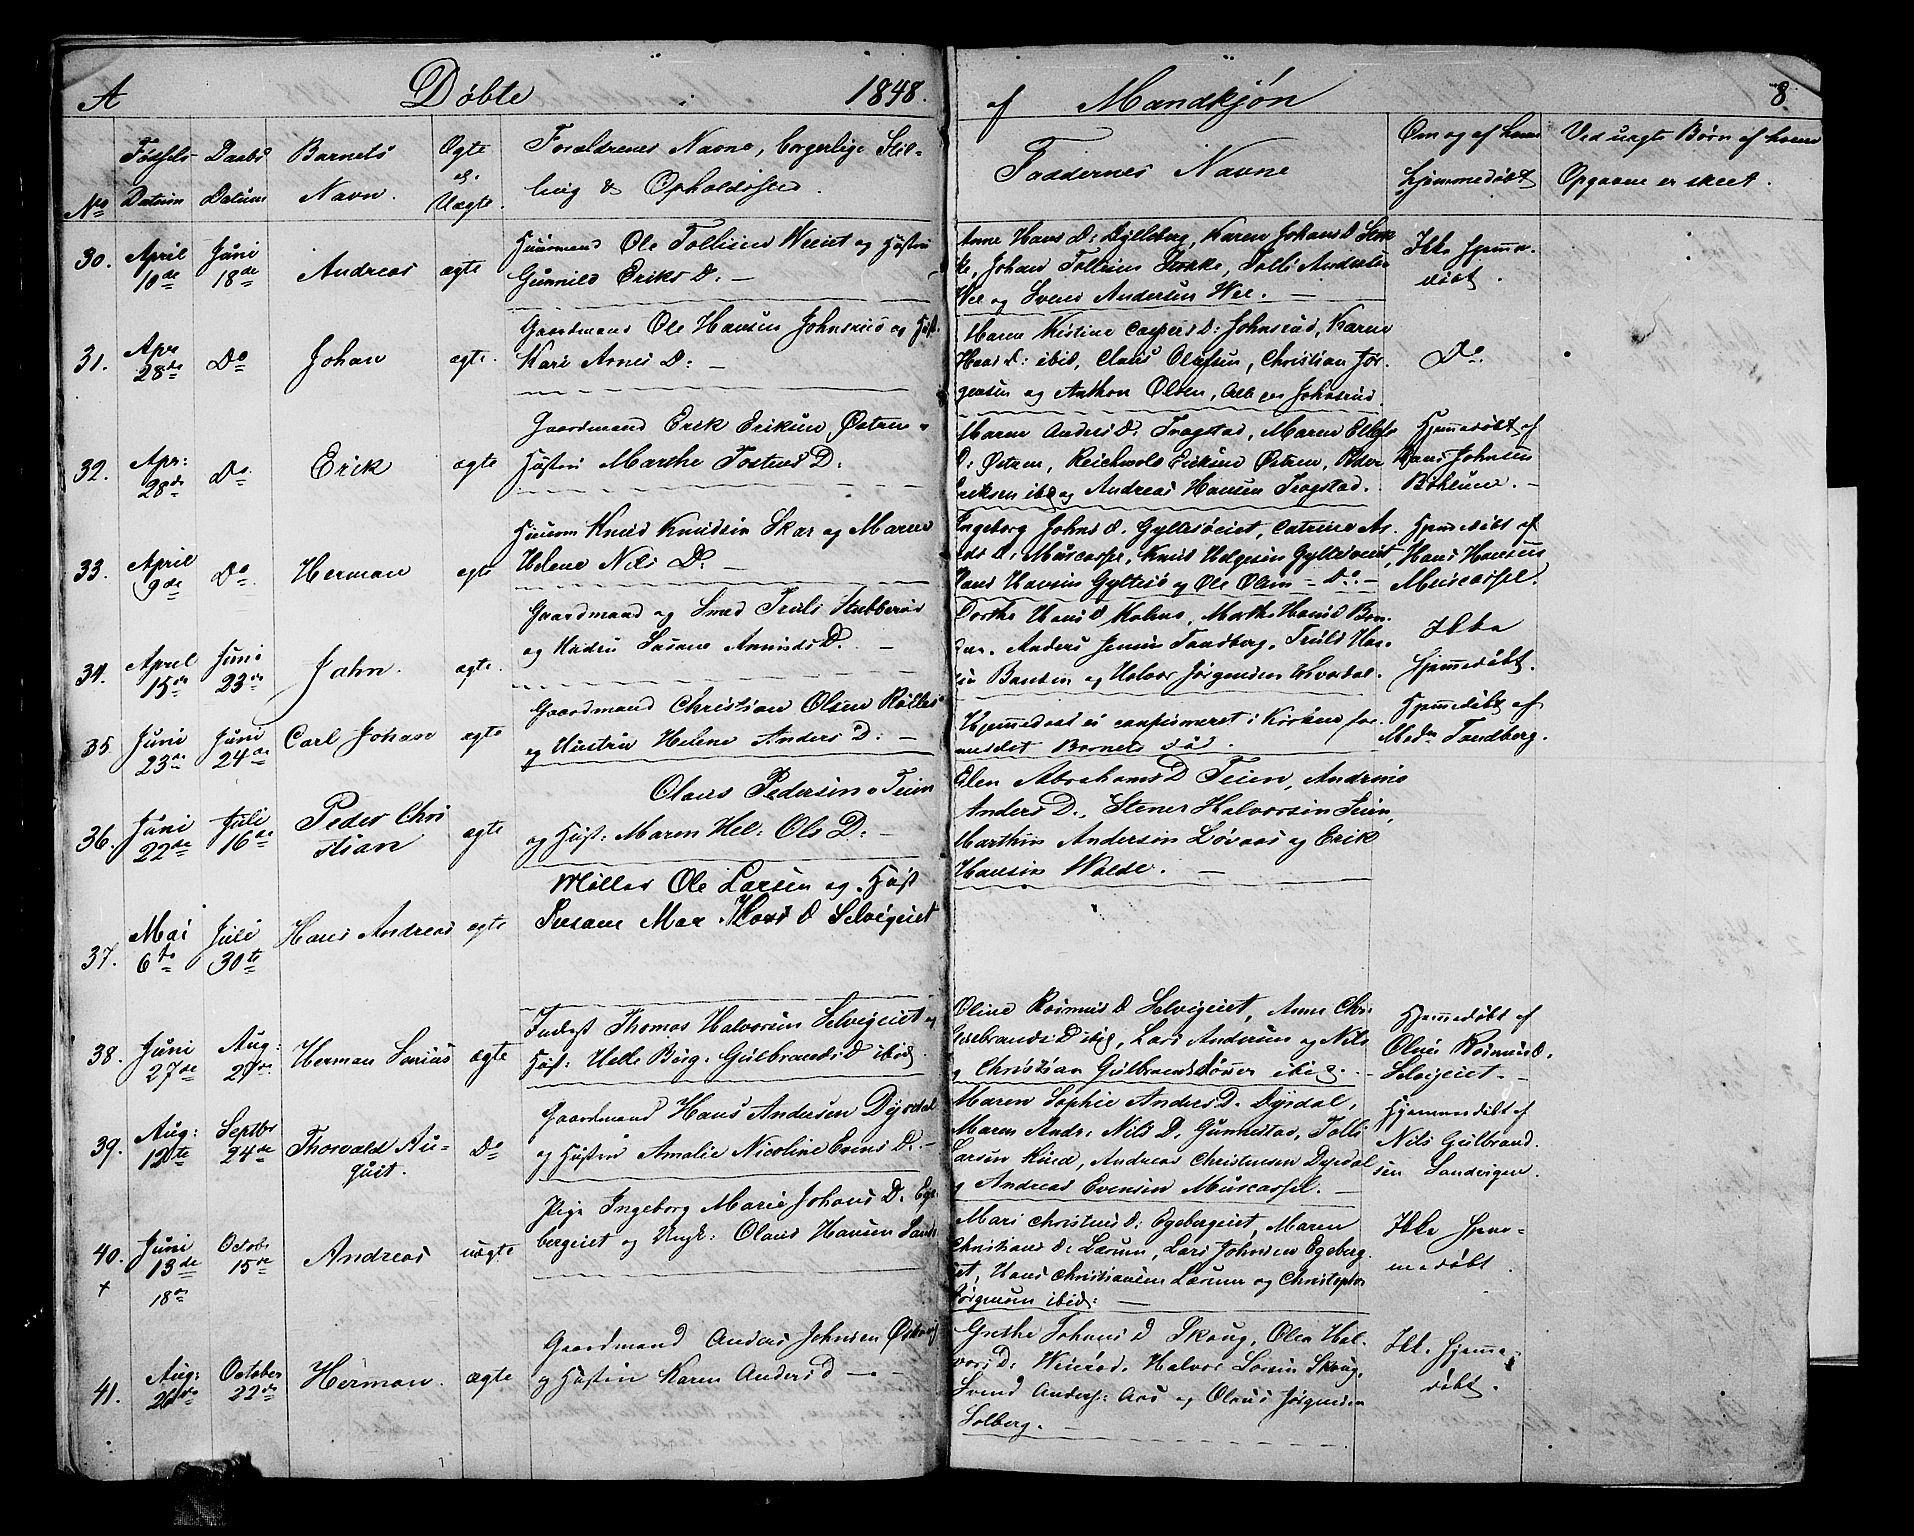 A Döbte i 1848. af Mandkjøn 8
Födsels Daabs Barnets Ægte Forældrenes Navne, borgerlige Stil-
No Datum Datum Navn. el. Uægte. ling & Opholdssted.
Faddernes Navne
Om og af hvem hjemmedöbt
Ved uægte Børn af hvem Opgaven er skeet.
30. April 10de Juni 18de Andreas ægte
Huusmand Ole Tollisen Weiet og Hustru
Gunnild Eriks D. —
Anne Hans D: Dylleberg, Karen Johans D Stok
ke, Johan Tollisen Stokke, Tolli Andersen
Wee og Svend Andersen Wee. —
Ikke hjemme-
döbt.
31. Apr 28de Do Johan ægte.
Gaardmand Ole Hansen Johnsrud og Hust.
Kari Arnes D: —
Maren Kistine Caspers D: Johnsrud, Karen
Hans D: ibid, Claus Olafsen, Christian Jör-
gensen og Anthon Olsen, Alle paa Johnsrud.
Do.
32. Apr: 28de Do Erik ægte
Gaardmand Erik Eriksen Østern
Hustru Marthe Tostens D:
Maren Anders D: Tragstad, Maren Ellefs
D: Østern, Reichwold Eriksen Østern, Peder
Eriksen ibid og Andreas Hansen Tragstad.
Hjemmedöbt af
Hans Johnsen
Bohlum. —
33. April 9de Do. Herman ægte
Huusm Knud Knudsen Skar og Maren
Helene Nils D: —
Ingeborg Johns D. Gyltesöeiet, Catrine An-
ders D: Muscaspe, Knud Helgesen Gyltesöeiet,
Hans Hansen Gyltesö og Ole Olsen — Do. —
Hjemmedöbt af
Hans Hansen
Muscassel.
34. April 15de Juni 23de John. ægte.
Gaardmand og Smed Truls Stubberud
og Hustru Susane Amunds D. —
Dorthe Hans D Holme, Marthe Hans D Bon-
den, Anders Jensen Tandberg, Truls Han-
sen Bansen og Halvor Jörgensen Hvordal.
Ikke
hjemmedöbt.
35 Juni 23de Juni 24de Carl Johan ægte
Gaardmand Christian Olsen Röllis
og Hustru Helene Anders D: —
Hjemmedaab ei confirmeret i Kirken for-
medelst Barnets Död.
Hjemmedöbt af
Mdm Tandberg.
36. Juni 22de Juli 16de Peder Chri
stian ægte
Olaus Pedersen Teien
og Hust: Maren Hel: Ols D: —
Elen Abrahams D Teien, Andrine
Anders D., Stener Halvorsen Teien,
Marthin Andersen Lövaas og Erik
Hansen Wolde. —
37. Mai 6te Juli 30te Hans Andreas ægte
Möller Ole Larsen og Hust
Susane Mar. Hans D Selvigeiet
38. Juni 27de Aug: 27de Herman Sorius ægte
Inderst Thomas Halvorsen Selvigeiet og
Hust: Helle Borg. Gulbrands D ibid.
Oline Rasmus D Selvigeiet, Anne Chr:
Gulbrands D ibid, Lars Andersen og Nils
og Christian Gulbrandssönner ibid. —
Hjemmedöbt af
Olaus Rasmusd.
Selvigeiet. —
39. Aug: 12te Septbr 24de Thorvald Au-
gust. Do
Gaardmand Hans Andersen Dyrdal
og Hustru Amalie Nicoline Evens D. —
Maren Sophie Anders D. Dyrdal,
Maren Andr: Nils D. Gunnestad, Tolli
Larsen Rud, Andreas Christensen Dyrdal
og Andreas Evensen Muscassel. —
Hjemmedöbt af
Nils Gulbrand-
sen Sandvigen.
40. + Juni 13de 18de Octobr 15de Andreas uægte
Pige Ingeborg Marie Johans D. Ege-
bergeiet og Ungk: Olaus Hansen Sand
Mari Christens D: Egebergeiet, Maren
Christians D: Lærum, Lars Johnsen Egeberg-
eiet, Hans Christiansen Lærum og Christopher
Jörgensen ibid: —
Ikke hjem-
medöbt.
41. Aug: 26de October 22de Herman. ægte
Gaardmand Anders Johnsen Østern
og Hustru Karen Anders D —
Grethe Johans D Skoug, Olea Hal-
vors D: Weierud, Halvor Larsen Skoug,
Svend Anders: Aas og Olaus Jörgensen
Solberg. —
Ikke hjemme-
döbt.